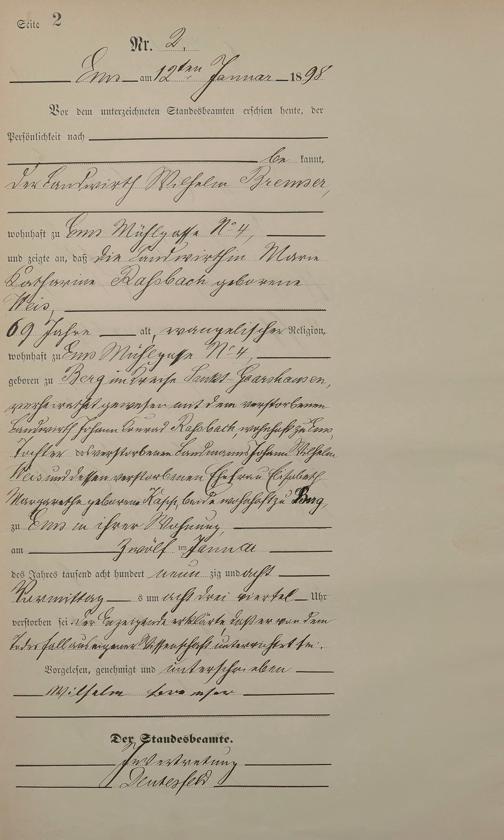 Seite 2
Nr. 2.
Ems am 12ten Januar 1898
Vor dem unterzeichneten Standesbeamten erschien heute, der
Persönlichkeit nach
be kannt,
der Landwirth Wilhelm Bremser,
wohnhaft zu Ems Mühlgasse No 4,
und zeigte an, daß die Landwirthin Marie
Catharine Raßbach geborene
Weis,
69 Jahre alt, evangelischer Religion,
wohnhaft zu Ems Mühlgasse No 4,
geboren zu Berg im Kreise Sankt-Goarshausen,
verheirathet gewesen mit dem verstorbenen
Landwirth Johann Konrad Raßbach, wohnhaft zu Ems,
Tochter des verstorbenen Landmanns Johann Wilhelm
Weis und dessen verstorbenen Ehefrau Elisabeth
Margarethe geborene beide wohnhaft zu Berg,
zu Ems in ihrer Wohnung,
am Zwölf ten Januar
des Jahres tausend acht hundert neun zig und acht
Vormittag s um acht drei viertel Uhr
verstorben sei der Anzeigende erklärte, daß er von dem
Todesfall aus eigener Wissenschaft unterrichtet sei.
Vorgelesen, genehmigt und unterschrieben
Wilhelm Bremser
Der Standesbeamte.
In Vertretung